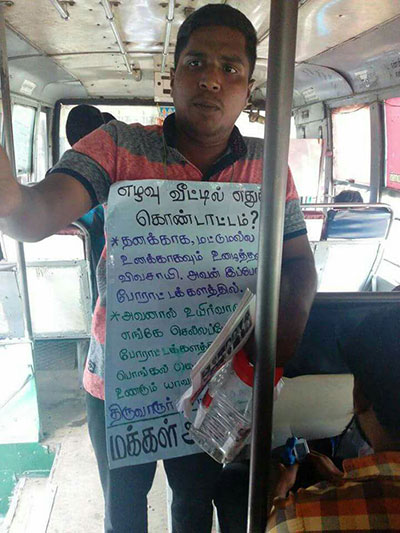 எழவு வீட்டில்
கொண்டாட்டம்?
* தனக்காக, மட்டுமல்ல
உனக்காகவும் உழைத்த
விவசாயி. அவன் இப்போ
போராட்டக்களத்தில்.
* அவனால் உயிர்வா
எங்கே செல்லப்போ
போராட்டக்களத்
பொங்கல்
உணரும் யாவ
திருவாரூர்
மக்கள்